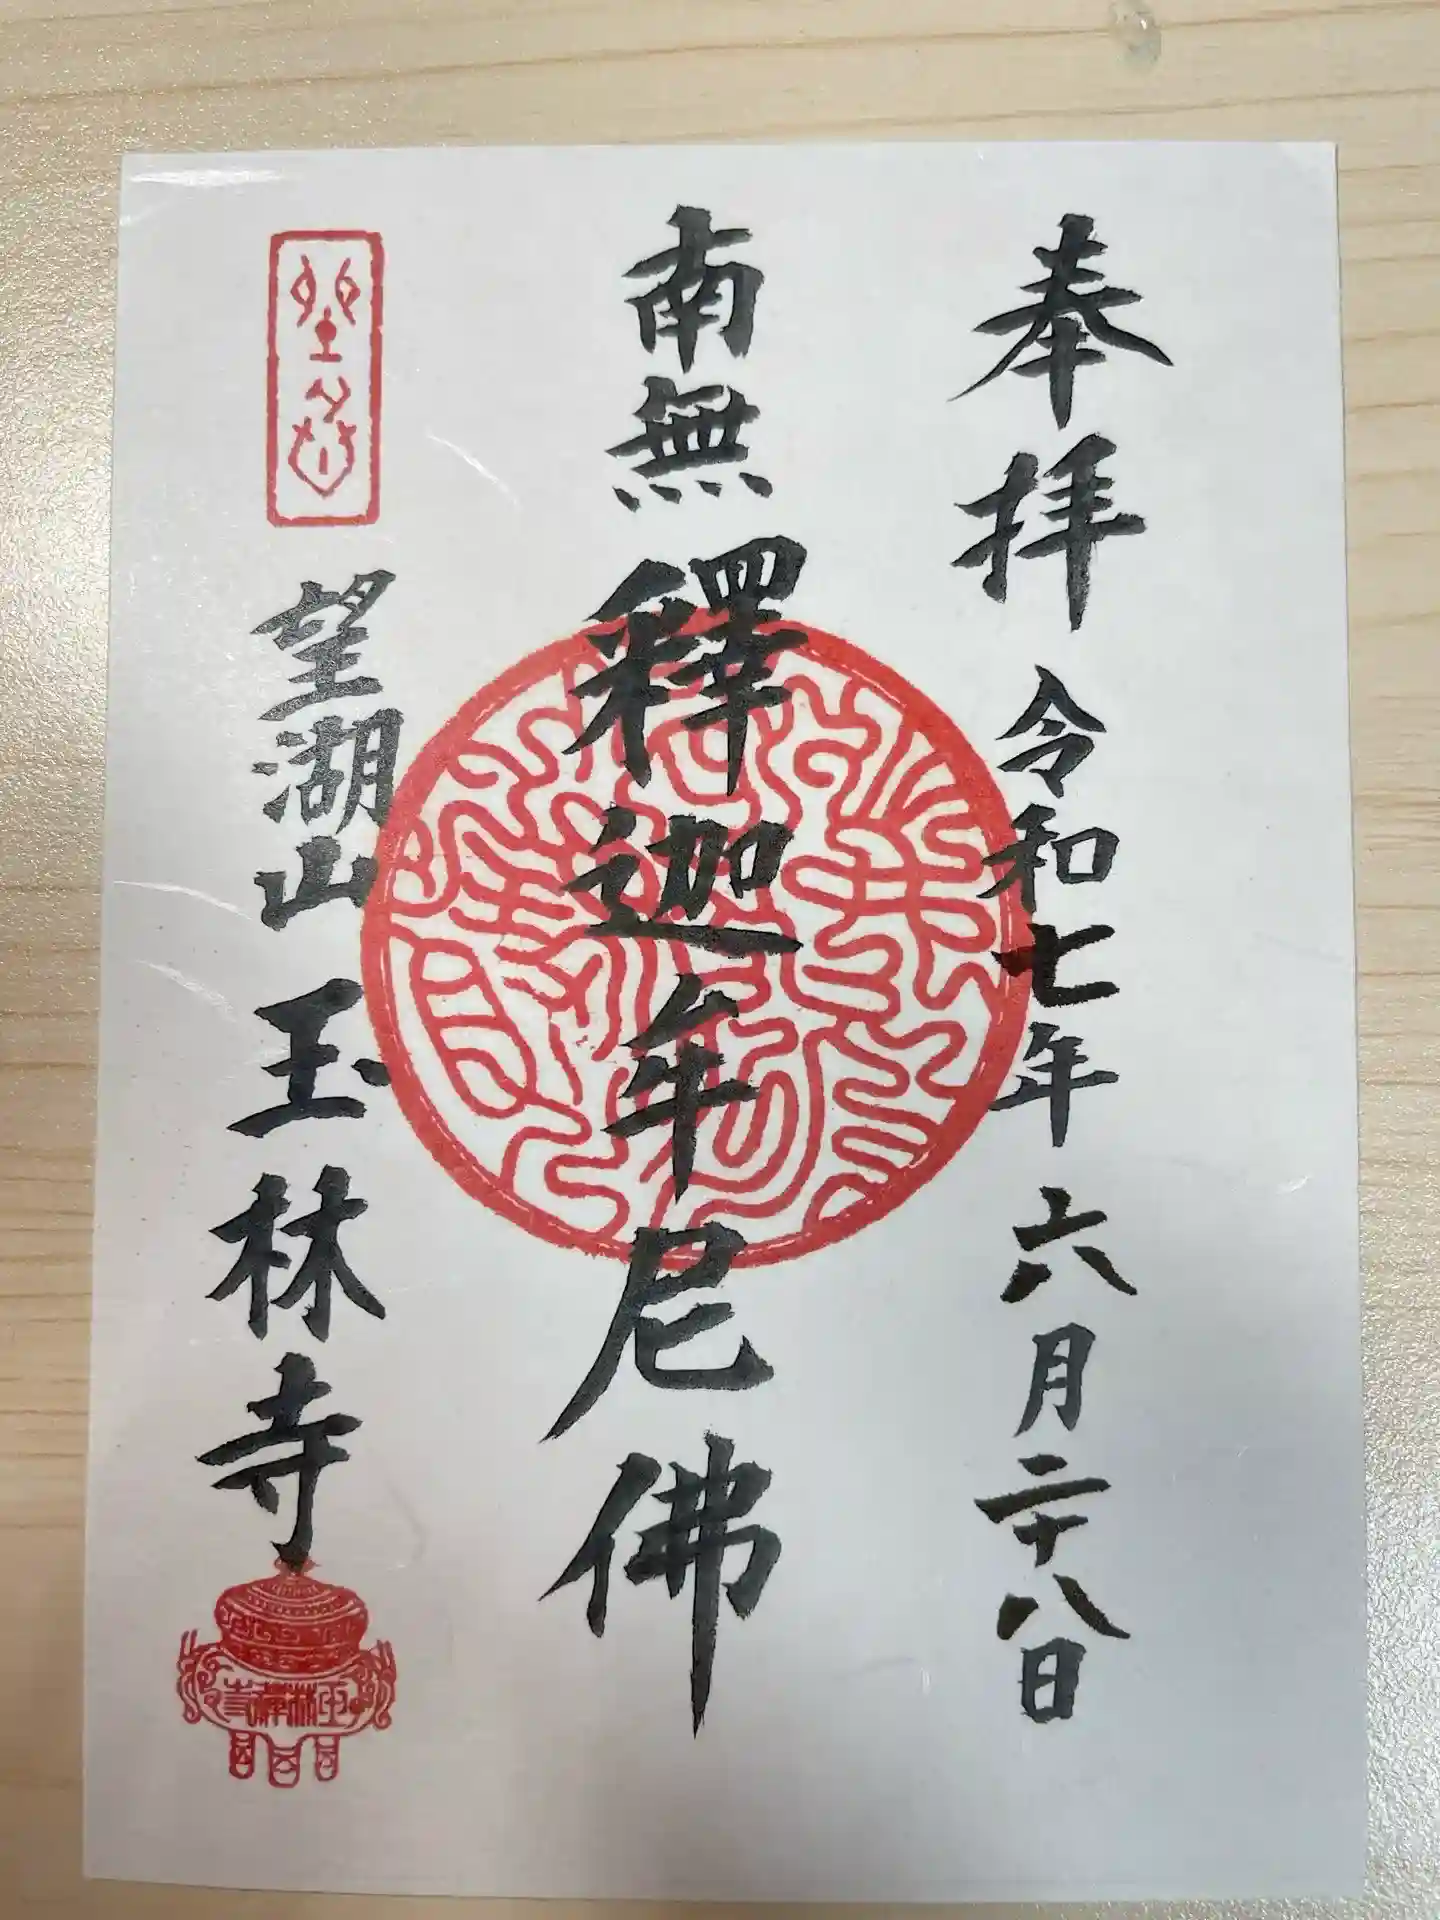 奉拝 令和七年 六月二十八日
南無釋迦牟尼佛
望湖山 玉林寺